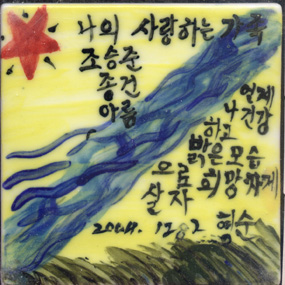 나의 사랑하는 가족
조승준
종건
아름
언제
나 건강
하고
밝은 모습
으로 희망차게
살자